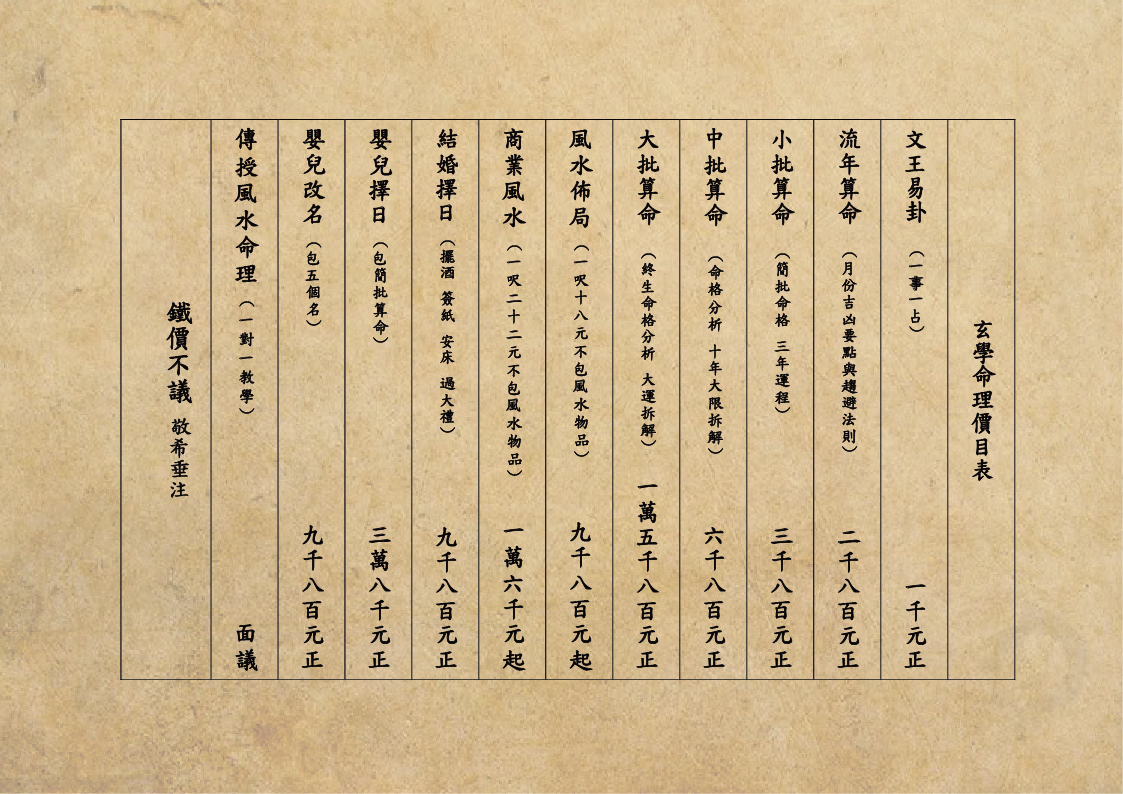 玄學命理價目表
文王易卦（一事一占）一千元正
流年算命（月份吉凶要點與趨避法則）二千八百元正
小批算命（簡批命格 三年運程）三千八百元正
中批算命（命格分析 十年大限拆解）六千八百元正
大批算命（終生命格分析 大運拆解）一萬五千八百元正
風水佈局（一呎十八元不包風水物品）九千八百元起
商業風水（一呎二十二元不包風水物品）一萬六千元起
結婚擇日（擺酒 簽紙 安床 過大禮）九千八百元正
嬰兒擇日（包簡批算命）三萬八千元正
嬰兒改名（包五個名）九千八百元正
傳授風水命理（一對一教學）面議
鐵價不議 敬希垂注